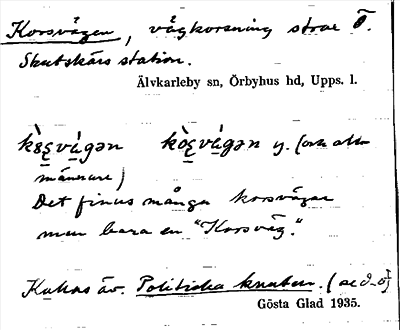 Korsvägen, vägkorsning strax ö.
Skutskärs station.
Älvkarleby sn, Örbyhus hd, Upps. l.
y. (och all-
männare)
Det finns många korsvägar
men bara en "Korsväg."
Kallas äv. Politiska knuten. (se d. o)
Gösta Glad 1935.